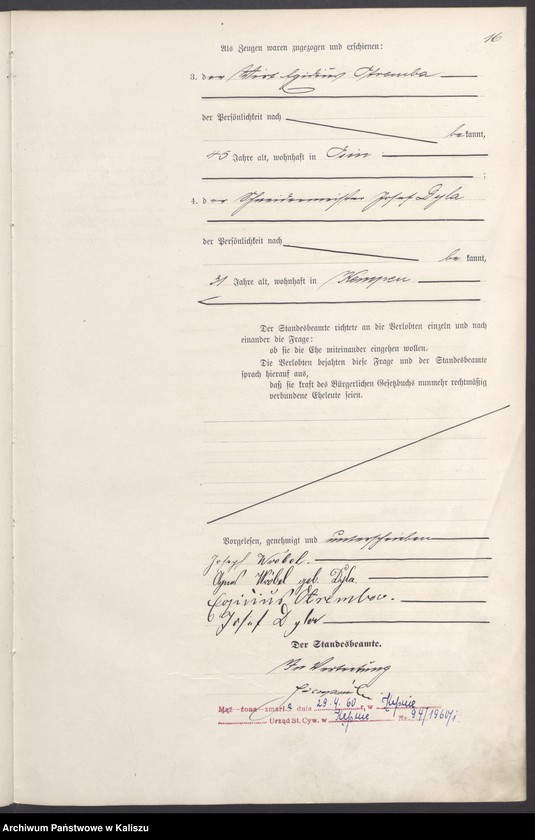 16
Als Zeugen waren zugezogen und erschienen:
3. der Wirt Egidius Otremba
der Persönlichkeit nach
bekannt,
45 Jahre alt, wohnhaft in
;
4. der Schneidermeister Josef Dyla
der Persönlichkeit nach
bekannt,
31 Jahre alt, wohnhaft in Kempen
Der Standesbeamte richtete an die Verlobten einzeln und nach
einander die Frage:
ob sie die Ehe miteinander eingehen wollen.
Die Verlobten bejahten diese Frage und der Standesbeamte
sprach hierauf aus,
daß sie kraft des Bürgerlichen Gesetzbuchs nunmehr rechtmäßig
verbundene Eheleute seien.
Vorgelesen, genehmigt und unterschrieben
Joseph Wróbel.
Agnes Wróbel geb. Dyla
Egidius Otremba.
Josef Dyla
Der Standesbeamte.
In Vertretung
Mąż żona zmarł a dnia 29.4.60 r, w Kępnie
Urząd St. Cyw. w Kępnie Nr. 94/1960/i
Archiwum Państwowe w Kaliszu